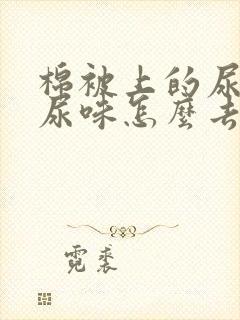 棉被上的尿
尿味怎麼去
霓裘